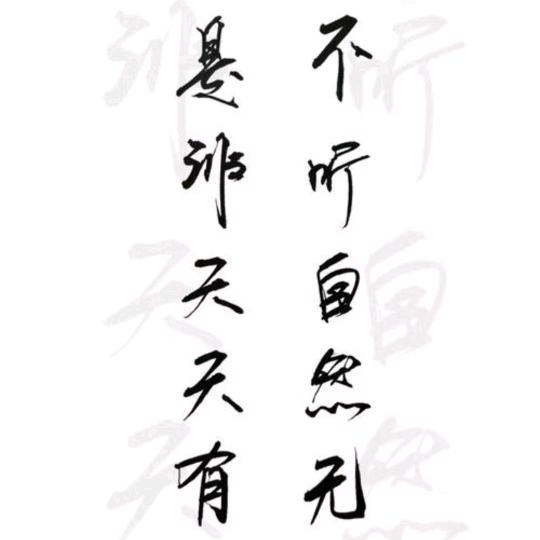 是非天天有
不听自然无